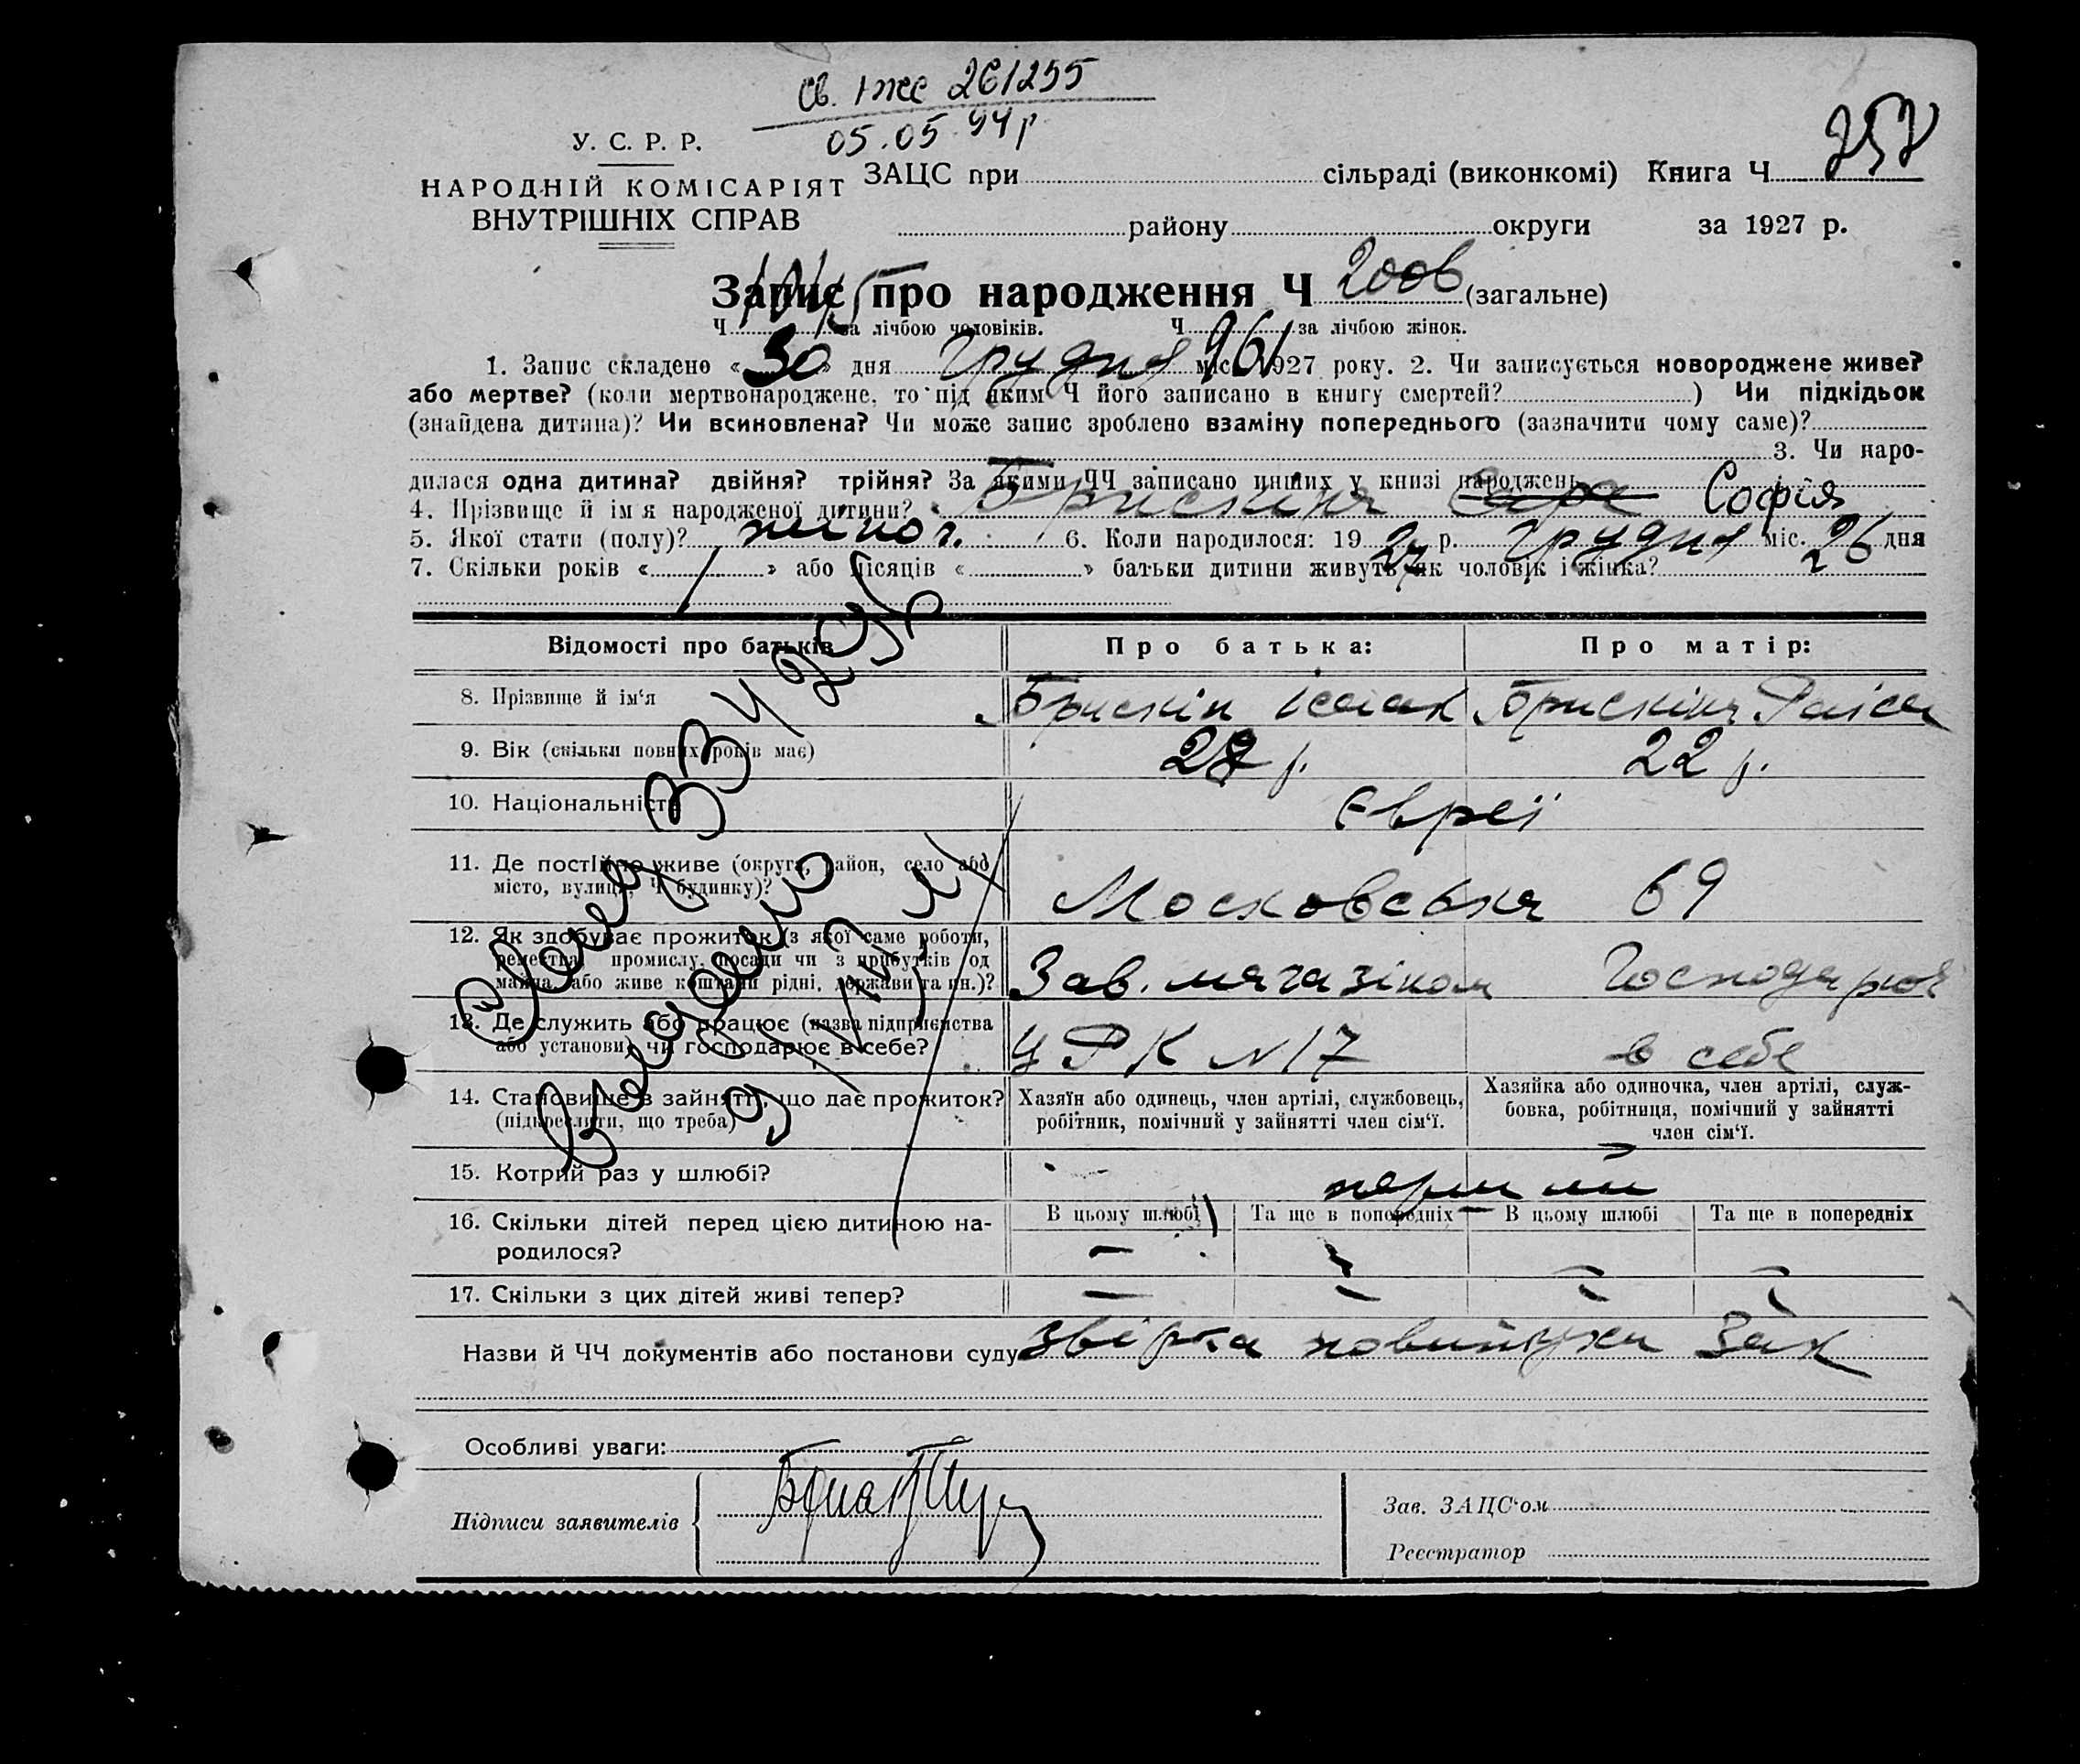 Св. 1 261255
05.05.94 р
У. С. Р. Р.
НАРОДНІЙ КОМІСАРІЯТ
ВНУТРІШНІХ СПРАВ
ЗАЦС при сільраді (виконкомі) Книга Ч 252
району округи за 1927 р.
Запис про народження Ч 2006 (загальне)
Ч 1045 за лічбою чоловіків. Ч 961 за лічбою жінок.
1. Запис складено « 30 » дня Грудня міс. 1927 року. 2. Чи записується новороджене живе?
або мертве? (коли мертвонароджене, то під яким Ч його записано в книгу смертей? ) Чи підкідьок
(знайдена дитина)? Чи всиновлена? Чи може запис зроблено взаміну попереднього (зазначити чому саме)?
3. Чи наро-
дилася одна дитина? двійня? трійня? За якими ЧЧ записано инших у книзі народжень
4. Прізвище й ім'я народженої дитини? Брискіна Сара Софія
5. Якої стати (полу)? жіноч. 6. Коли народилося: 19 27 р. Грудня міс. 26 дня
7. Скільки років « » або місяців « » батьки дитини живуть як чоловік і жінка?
Відомості про батьків Про батька: Про матір:
8. Прізвище й ім'я Брискін Ісаак Брискіна Раіса
9. Вік (скільки повних років має) 28 р. 22 р.
10. Національність Євреї
11. Де постійно живе (округа, район, село або
місто, вулиця, Ч будинку)? Московська 69
12. Як здобуває прожиток (з якої саме роботи,
ремества, промислу, посади чи з прибутків од
майна, або живе коштами рідні, держави та ин.)? Зав. магазіном Господарює
13. Де служить або працює (назва підприємства
або установи) чи господарює в себе? ЦРК N 17 в себе
14. Становище в зайнятті, що дає прожиток?
(підкреслити, що треба)
Хазяїн або одинець, член артілі, службовець,
робітник, помічний у зайнятті член сім'ї.
Хазяйка або одиночка, член артілі, служ-
бовка, робітниця, помічний у зайнятті
член сім'ї.
15. Котрий раз у шлюбі? перший
16. Скільки дітей перед цією дитиною на-
родилося?
В цьому шлюбі Та ще в попередніх В цьому шлюбі Та ще в попередніх
17. Скільки з цих дітей живі тепер?
Назви й ЧЧ документів або постанови суду Звірка
Особливі уваги:
Підписи заявителів
Зав. ЗАЦС'ом
Реєстратор